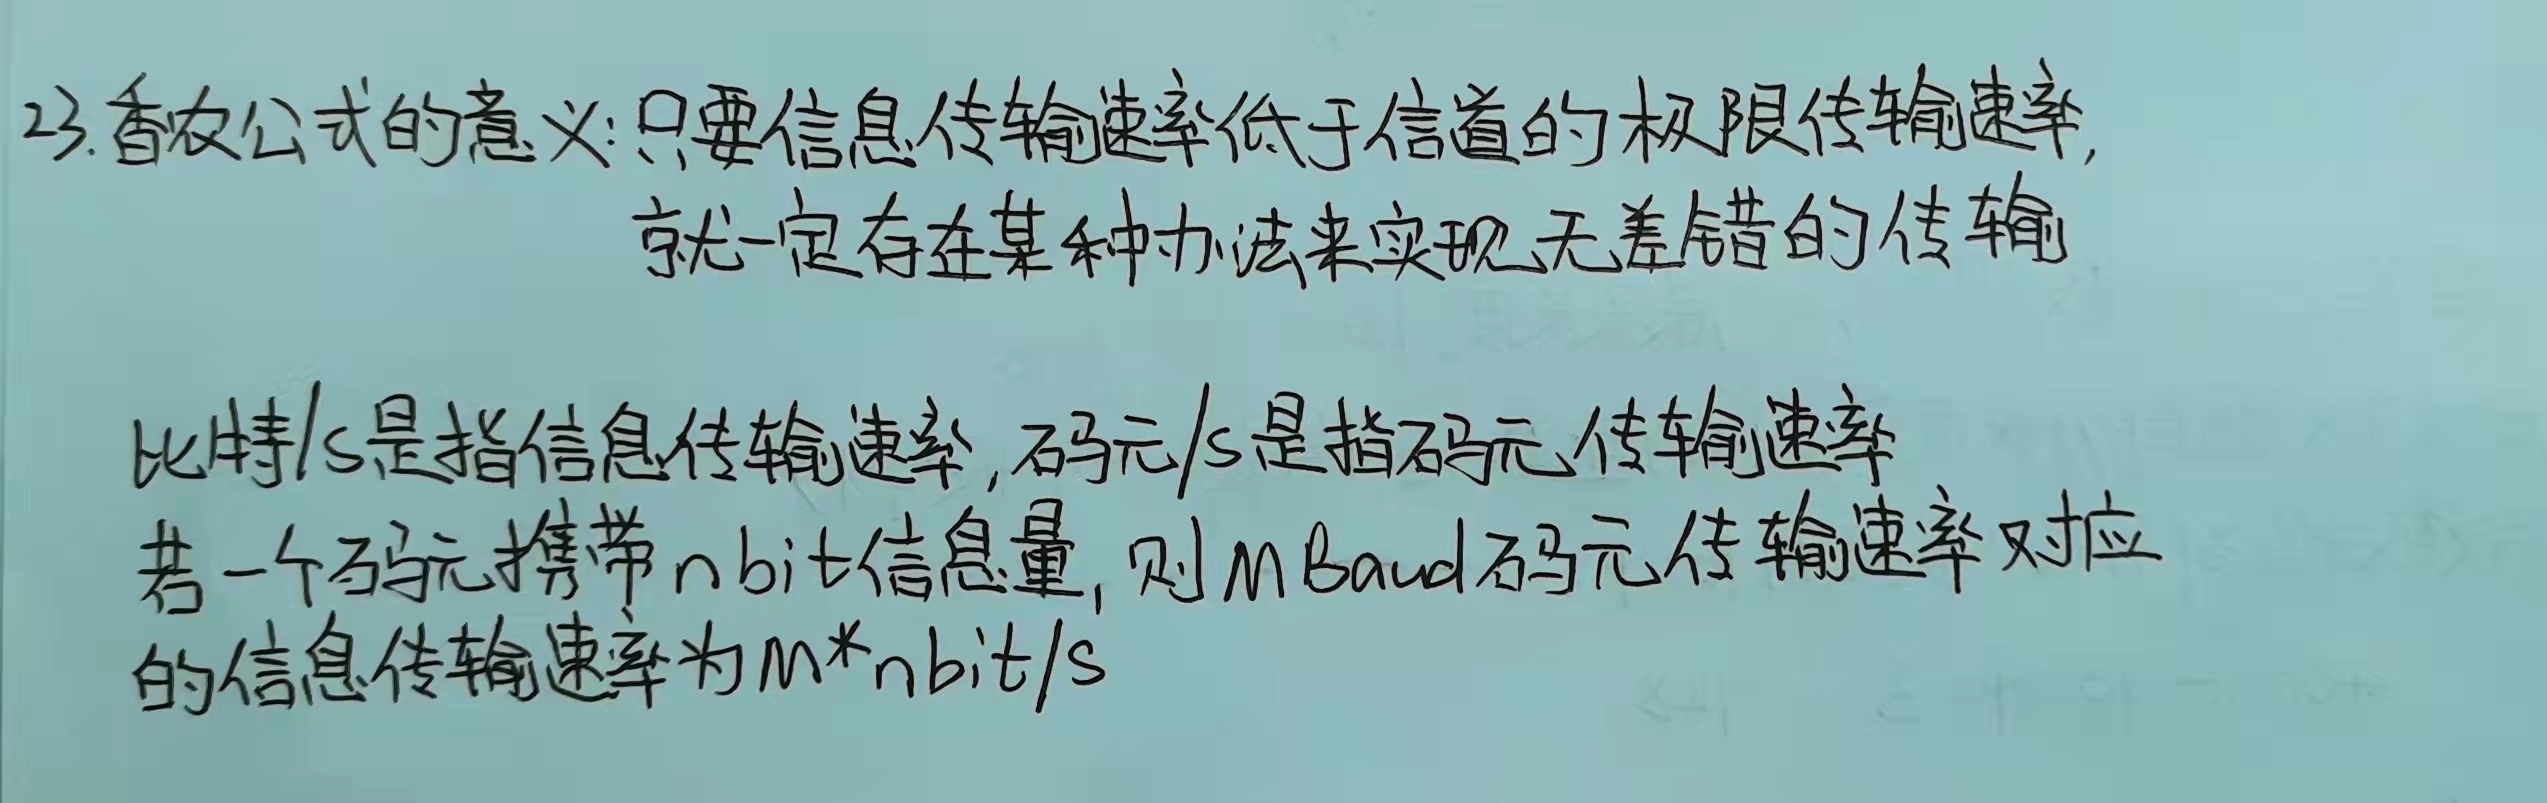 23.香农公式的意义:只要信息传输速率低于信道的极限传输速率,
就一定存在某种办法来实现无差错的传输
比特/s是指信息传输速率,码元/s是指码元传输速率
若一个码元携带nbit信息量,则MBaud码元传输速率对应
的信息传输速率为M*nbit/s